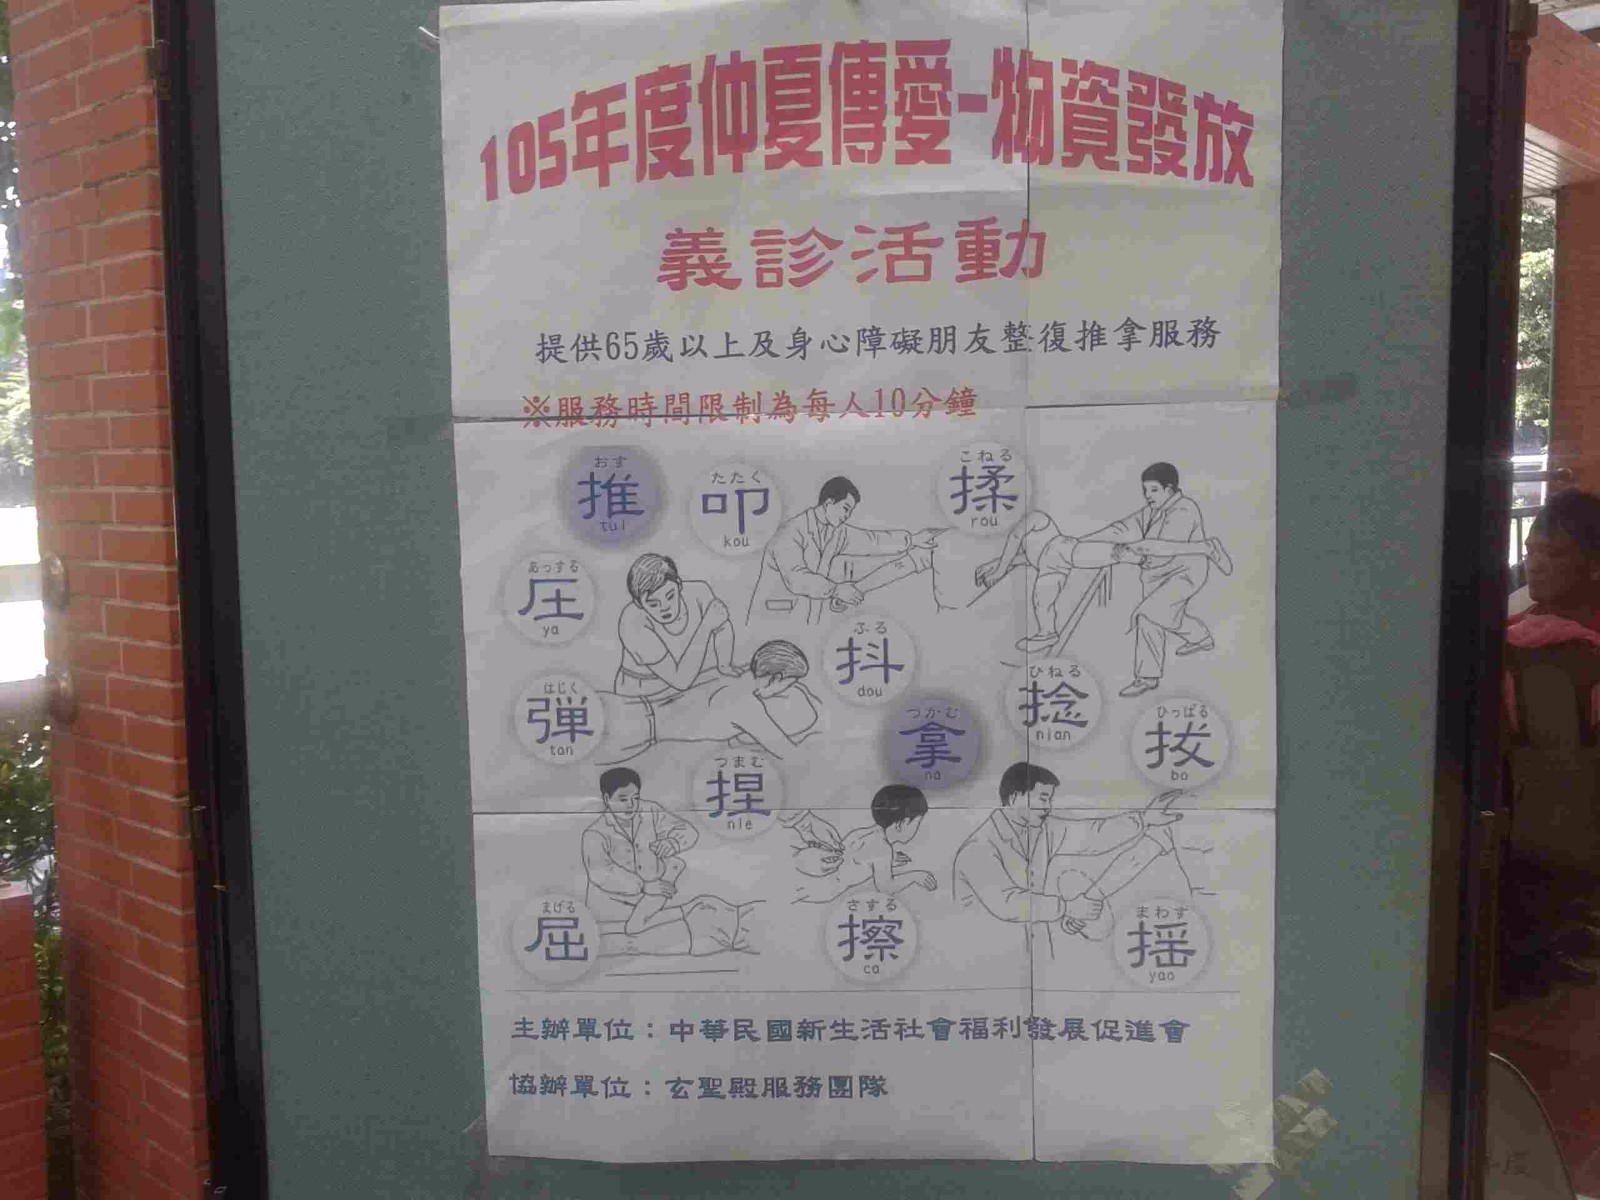 105年度仲夏傳愛-物資發放
義診活動
提供65歲以上及身心障礙朋友整復推拿服務
※服務時間限制為每人10分鐘
おす
推
tui
たたく
叩
kou
こねる
揉
rou
あっする
圧
ya
ふる
抖
dou
はじく
弾
tan
ひねる
捻
nian
つかむ
拿
na
ひっぱる
拔
ba
つまむ
捏
nie
まげる
屈
さする
擦
ca
まわす
揺
yao
主辦單位：中華民國新生活社會福利發展促進會
協辦單位：玄聖殿服務團隊